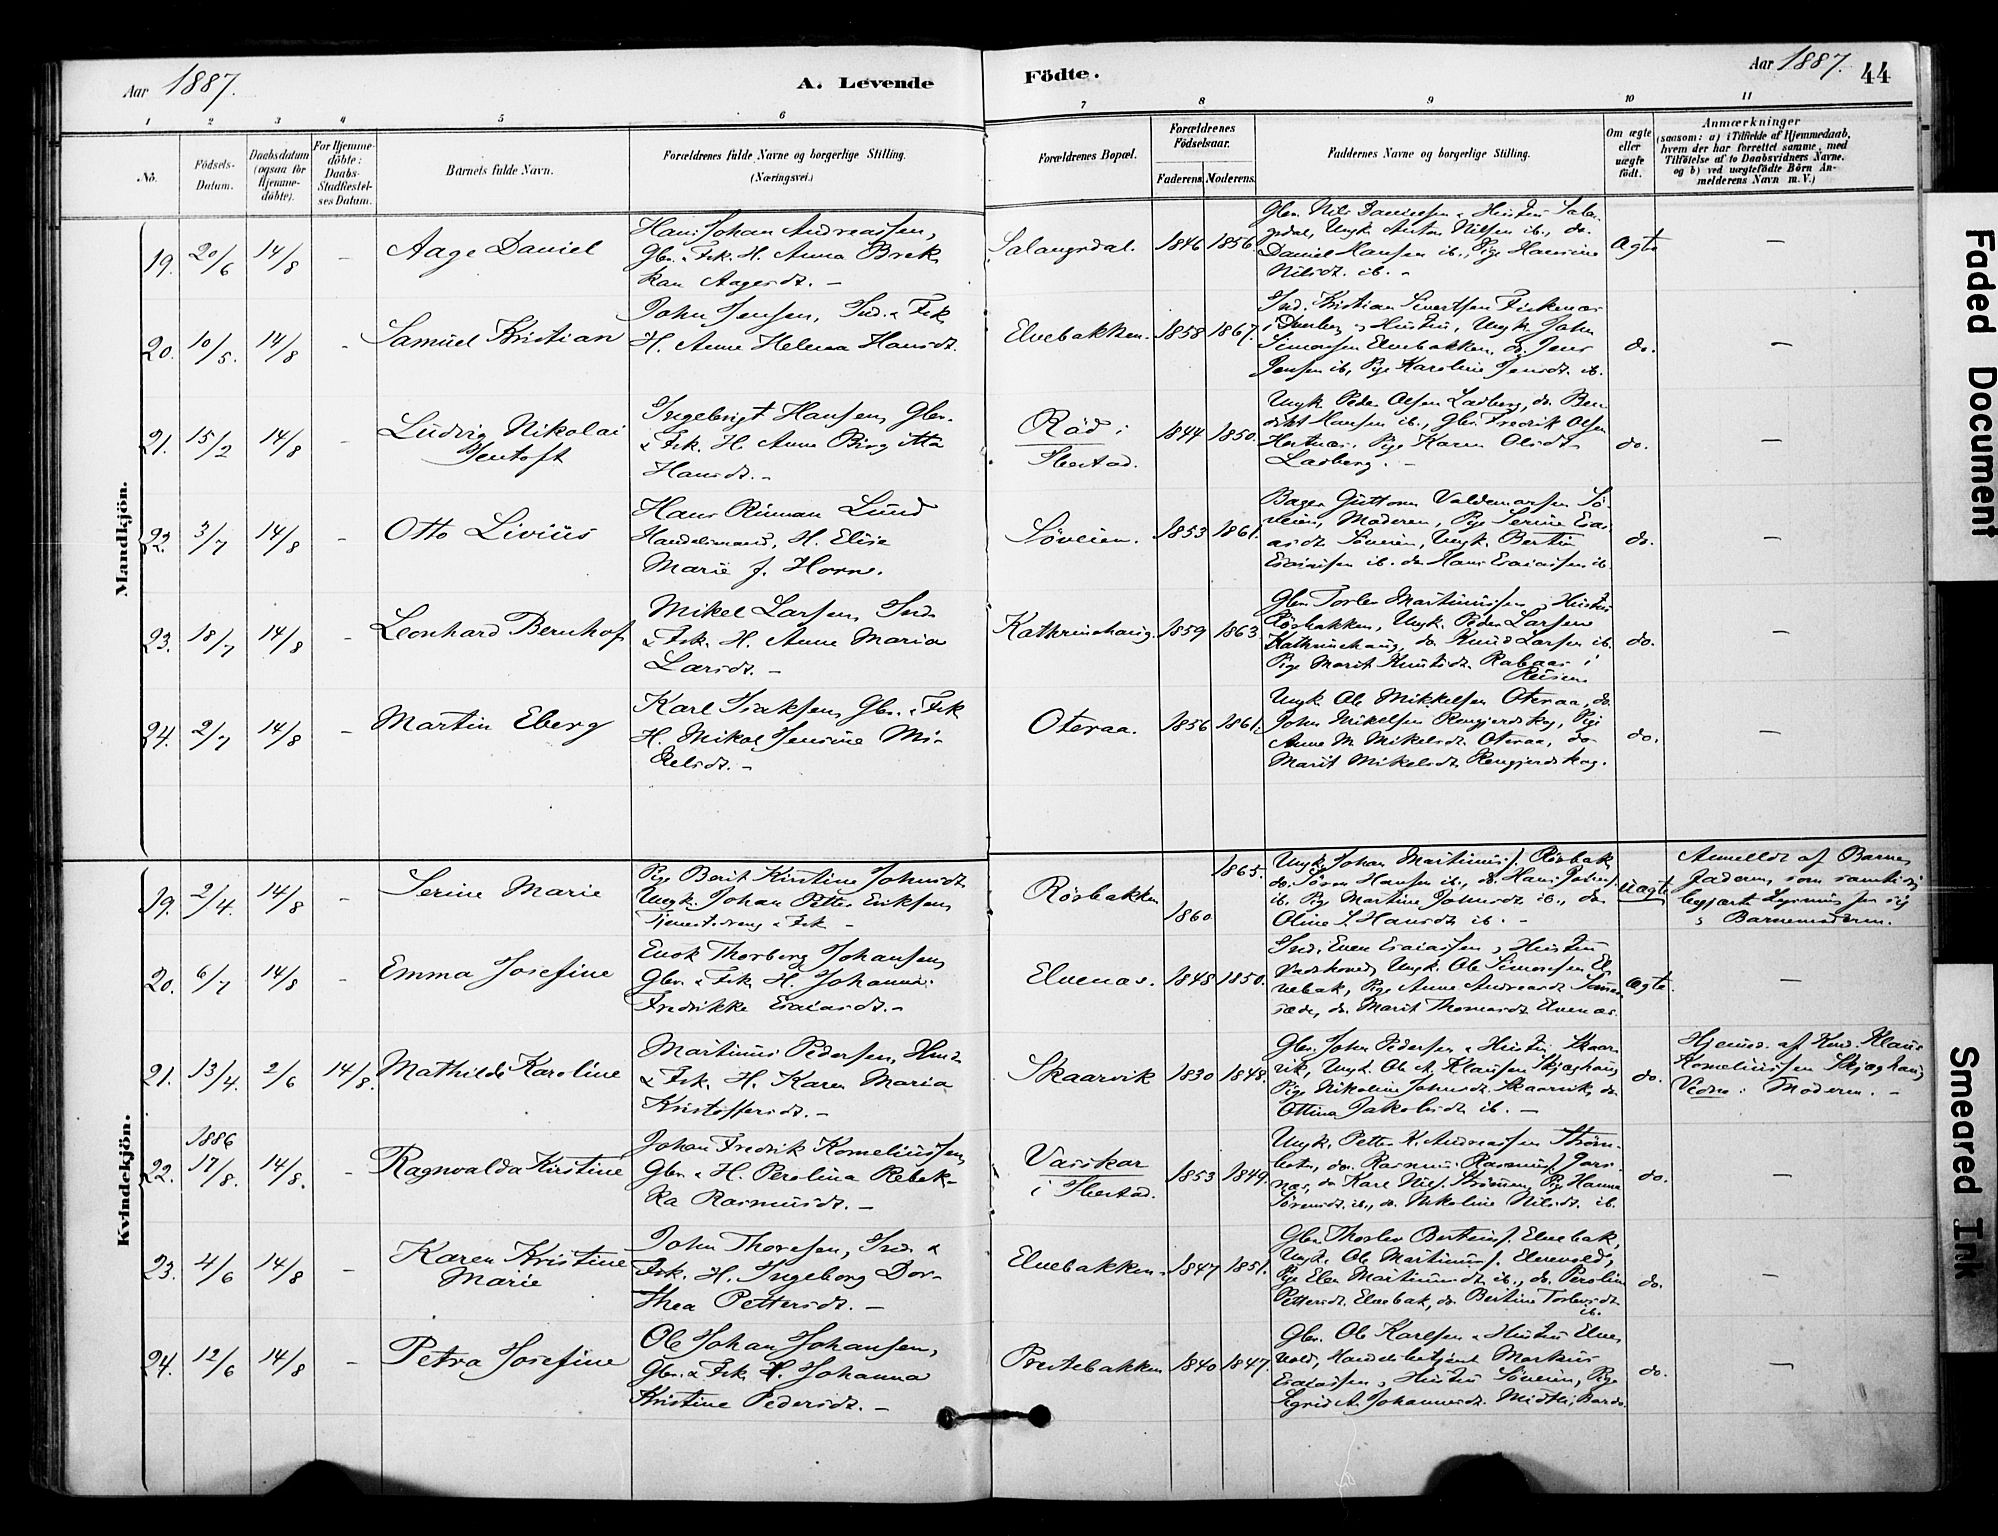 Aar 1887.
A. Levende
Födte.
Aar 1887.
44
1 2 3 4 5 6 7 8 9 10 11
No.
Födsels-
Datum.
Daabsdatum
(ogsaa for
Hjemme-
döbte).
For Hjemme-
döbte:
Daabs-
Stadfæstel-
ses Datum.
Barnets fulde Navn.
Forældrenes fulde Navne og borgerlige Stilling.
(Næringsvei.)
Forældrenes Bopæl.
Forældrenes
Födselsaar.
Faderens.
Moderens.
Faddernes Navne og borgerlige Stilling.
Om ægte
eller
uægte
födt.
Anmærkninger
(saasom: a) i Tilfælde af Hjemmedaab,
hvem der har forrettet samme, med
Tilföielse af to Daabsvidners Navne.
og b) ved uægtefödte Börn An-
melderens Navn m. V.)
Mandkjön.
19. 20/6 14/8 - Aage Daniel
Hans Johan Andreassen,
Gbr. & Fsk. H. Anna Brek
kan Aagesdt. -
Salangsdal. 1846 1856.
Gbr. Nils Danielsen & Hustru Salan
gsdal, Ungk. Anton Nilsen ib., do.
Daniel Hansen ib., Pige Hansine
Nilsdt. ib. -
Ægte -
20. 10/5. 14/8 - Samuel Kristian
John Jensen, Ind. & Fsk.
H. Anne Helena Hansdt.
Elvebakken. 1858 1867.
Ind. Kristian Sivertsen Fiskenæs
i & Hustru, Ungk. John
Simonsen Elvebakken, do. Jens
Jensen ib., Pige Karoline Jensdt. ib.
do. -
21. 15/2 14/8 - Ludvig Nikolai
Jentoft
Ingebrigt Hansen, Gbr.
& Fsk. H. Anne Birgitta
Hansdt. -
Röd i
Ibestad. 1844 1850.
Ungk. Peder Olsen Ladberg, do. Ben
dikt Hansen ib., Gbr. Fredrik Olsen
Hertnæs, Pige Karen Olsdt.
Ladberg. -
do. -
22. 3/7 14/8 - Otto Livius
Hans Lund
Handelsmand, H. Elise
Marie f. Horne.
Søveien. 1853 1861.
Bager Guttorm Valdemarsen Sö
veien, Moderen, Pige Serine Esai
asdt. Søveien, Ungk. Bertin
Esaiassen ib. do. Hans Esaiassen ib.
do. -
23. 18/7 14/8 - Leonhard Bernhof
Mikel Larsen, Ind.
& Fsk. H. Anne Maria
Larsdt. -
Kathrinehaug. 1859 1863
Gbr. Torlev Martinussen & Hustru
Rösbakken, Ungk. Peder Larsen
Kathrinehaug, do. Knud Larsen ib.
Pige Marit Knutsdt. Rabaas i
do. -
24. 2/7 14/8 - Martin Eberg
Karl Isaksen, Gbr. & Fsk
H. Mikal Jensine Mi-
kelsdt. -
Oteraa. 1856 1861.
Ungk. Ole Mikkelsen Oteraa, do.
John Mikelsen Rengjerdskog, Pige
Anne M. Mikelsdt. Oteraa, do.
Marit Mikelsdt. Rengjerdskog.
do. -
Kvindekjön.
19. 2/4. 14/8 - Serine Marie
Pige Berit Kirstine Johnsdt.
Ungk. Johan Petter Eriksen,
Tjenestedreng & Fsk -
Rösbakken 1860 1865.
Ungk. Johan Martinus. Rösbak
do. Sören Hansen ib., do. Hans
ib. Pige Martine Johnsdt. ib., do.
Oline S. Hansdt. ib. -
uægte
Anmeldt af Barne
faderen, som samtidig
begjærte for sig
& Barnemoderen.
20. 6/7 14/8 - Emma Josefine
Enok Thorberg Johansen,
Gbr. & Fsk. H. Johanna
Fredrikke Esaiasdt. -
Elvenæs. 1848 1850.
Ind. Even Esaiassen & Hustru
Ungk. Ole Simonsen El
vebak, Pige Anne Andreasdt.
do. Marit Thomasdt. Elvenæs.
ægte. -
21. 13/4. 2/6 14/8. Mathilde Karoline
Martinus Pedersen, Ind.
& Fsk. H. Karen Maria
Kristoffersdt. -
Skaarvik 1830 1848.
Gbr. John Pedersen & Hustru Skaar
vik, Ungk. Ole A. Klausen Skjæghaug
Pige Nikoline Johnsdt. Skaarvik, do.
Ottina Jakobsdt. ib. -
do.
Hjemd. af Klaus
Korneliussen Skjæghaug
Vidne: Moderen. -
22. 1886
17/8. 14/8. - Ragnvalda Kirstine
Johan Fredrik Korneliussen,
Gbr. & H. Perolina Rebek-
ka Rasmusdt. -
Vasskar
i Ibestad. 1853 1849.
Ungk. Petter K. Andreassen Ström-
do. Rasmus Rasmus.
næs, do. Karl Nils. Strömmen, Pige Hanna
Sörensdt. ib., do. Nikoline Nilsdt. ib.
do. -
23. 4/6 14/8 - Karen Kristine
Marie
John Thoresen, Ind. &
Fsk. H. Ingeborg Dor-
thea Pettersdt. -
Elvebakken. 1847 1851.
Gbr. Thorlev Bertinus. Elvebak,
Ungk. Ole Martinus. Elvevold,
Pige Elen Martinusdt. ib., do. Perolin
Pettersdt. Elvebak, do. Bertine Torlevsdt.
ib.
do. -
24. 12/6 14/8 - Petra Josefine
Ole Johan Johansen,
Gbr. & Fsk. H. Johanna
Kristine Pedersdt. -
Prestebakken 1840 1847
Gbr. Ole Karlsen & Hustru Elve
vold, Handelsbetjent Markus
Esaiassen & Hustru Söveien, Pige
Sigrid A. Johannesdt. Midtli, Bardo.
do. -
Faded Document
Smeared Ink